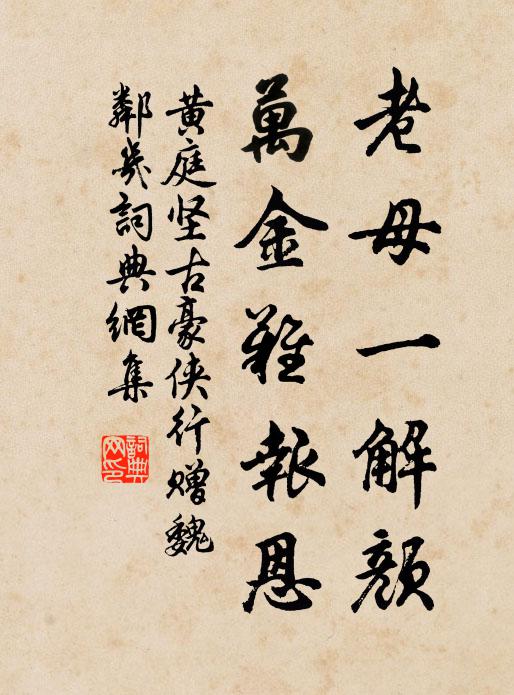 老母一解顏
萬金難報恩
黄庭坚古豪侠行赠魏
鄰幾詞典網集
詞典
网印